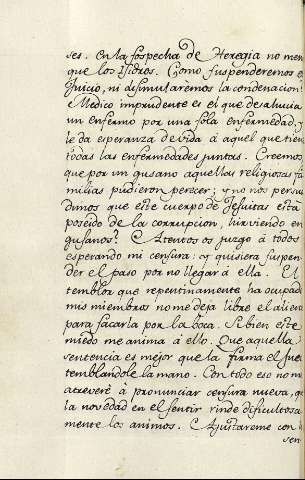 ses. En la sospecha de Heregia no men
que los Isidros. Como suspenderemos e
Juicio, ni disimularemos la condenacion?
Medico imprudente es el que desahucia
un enfermo por una sola enfermedad, y
le da esperanza de vida à aquel que tien
todas las enfermedades juntas. Creemos
que por un gusano aquellas religiosas fa
milias pudieron perecer; y no nos persua
dimos que este cuerpo de Jesuitas està
poseido de la corrupcion, hirviendo en
gusanos? Atentos os juzgo à todos
esperando mi censura: y quisiera suspen
der el paso por no llegar à ella. El
temblor que repentinamente ha ocupado
mis miembros no me deja libre el alien
para sacarla por la boca. Si bien este
miedo me anima à ello. Que aquella
sentencia es mejor que la firma el Juez
temblandole la mano. Con todo eso no m
atreverè à pronunciar censura nueva, q
la novedad en el sentir rinde dificultosa
mente los animos. Ajustareme con l
sen